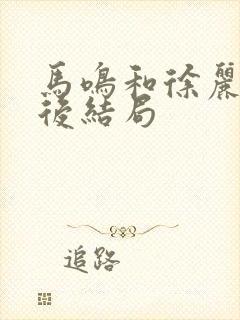 馬鳴和徐麗
後結局
追路